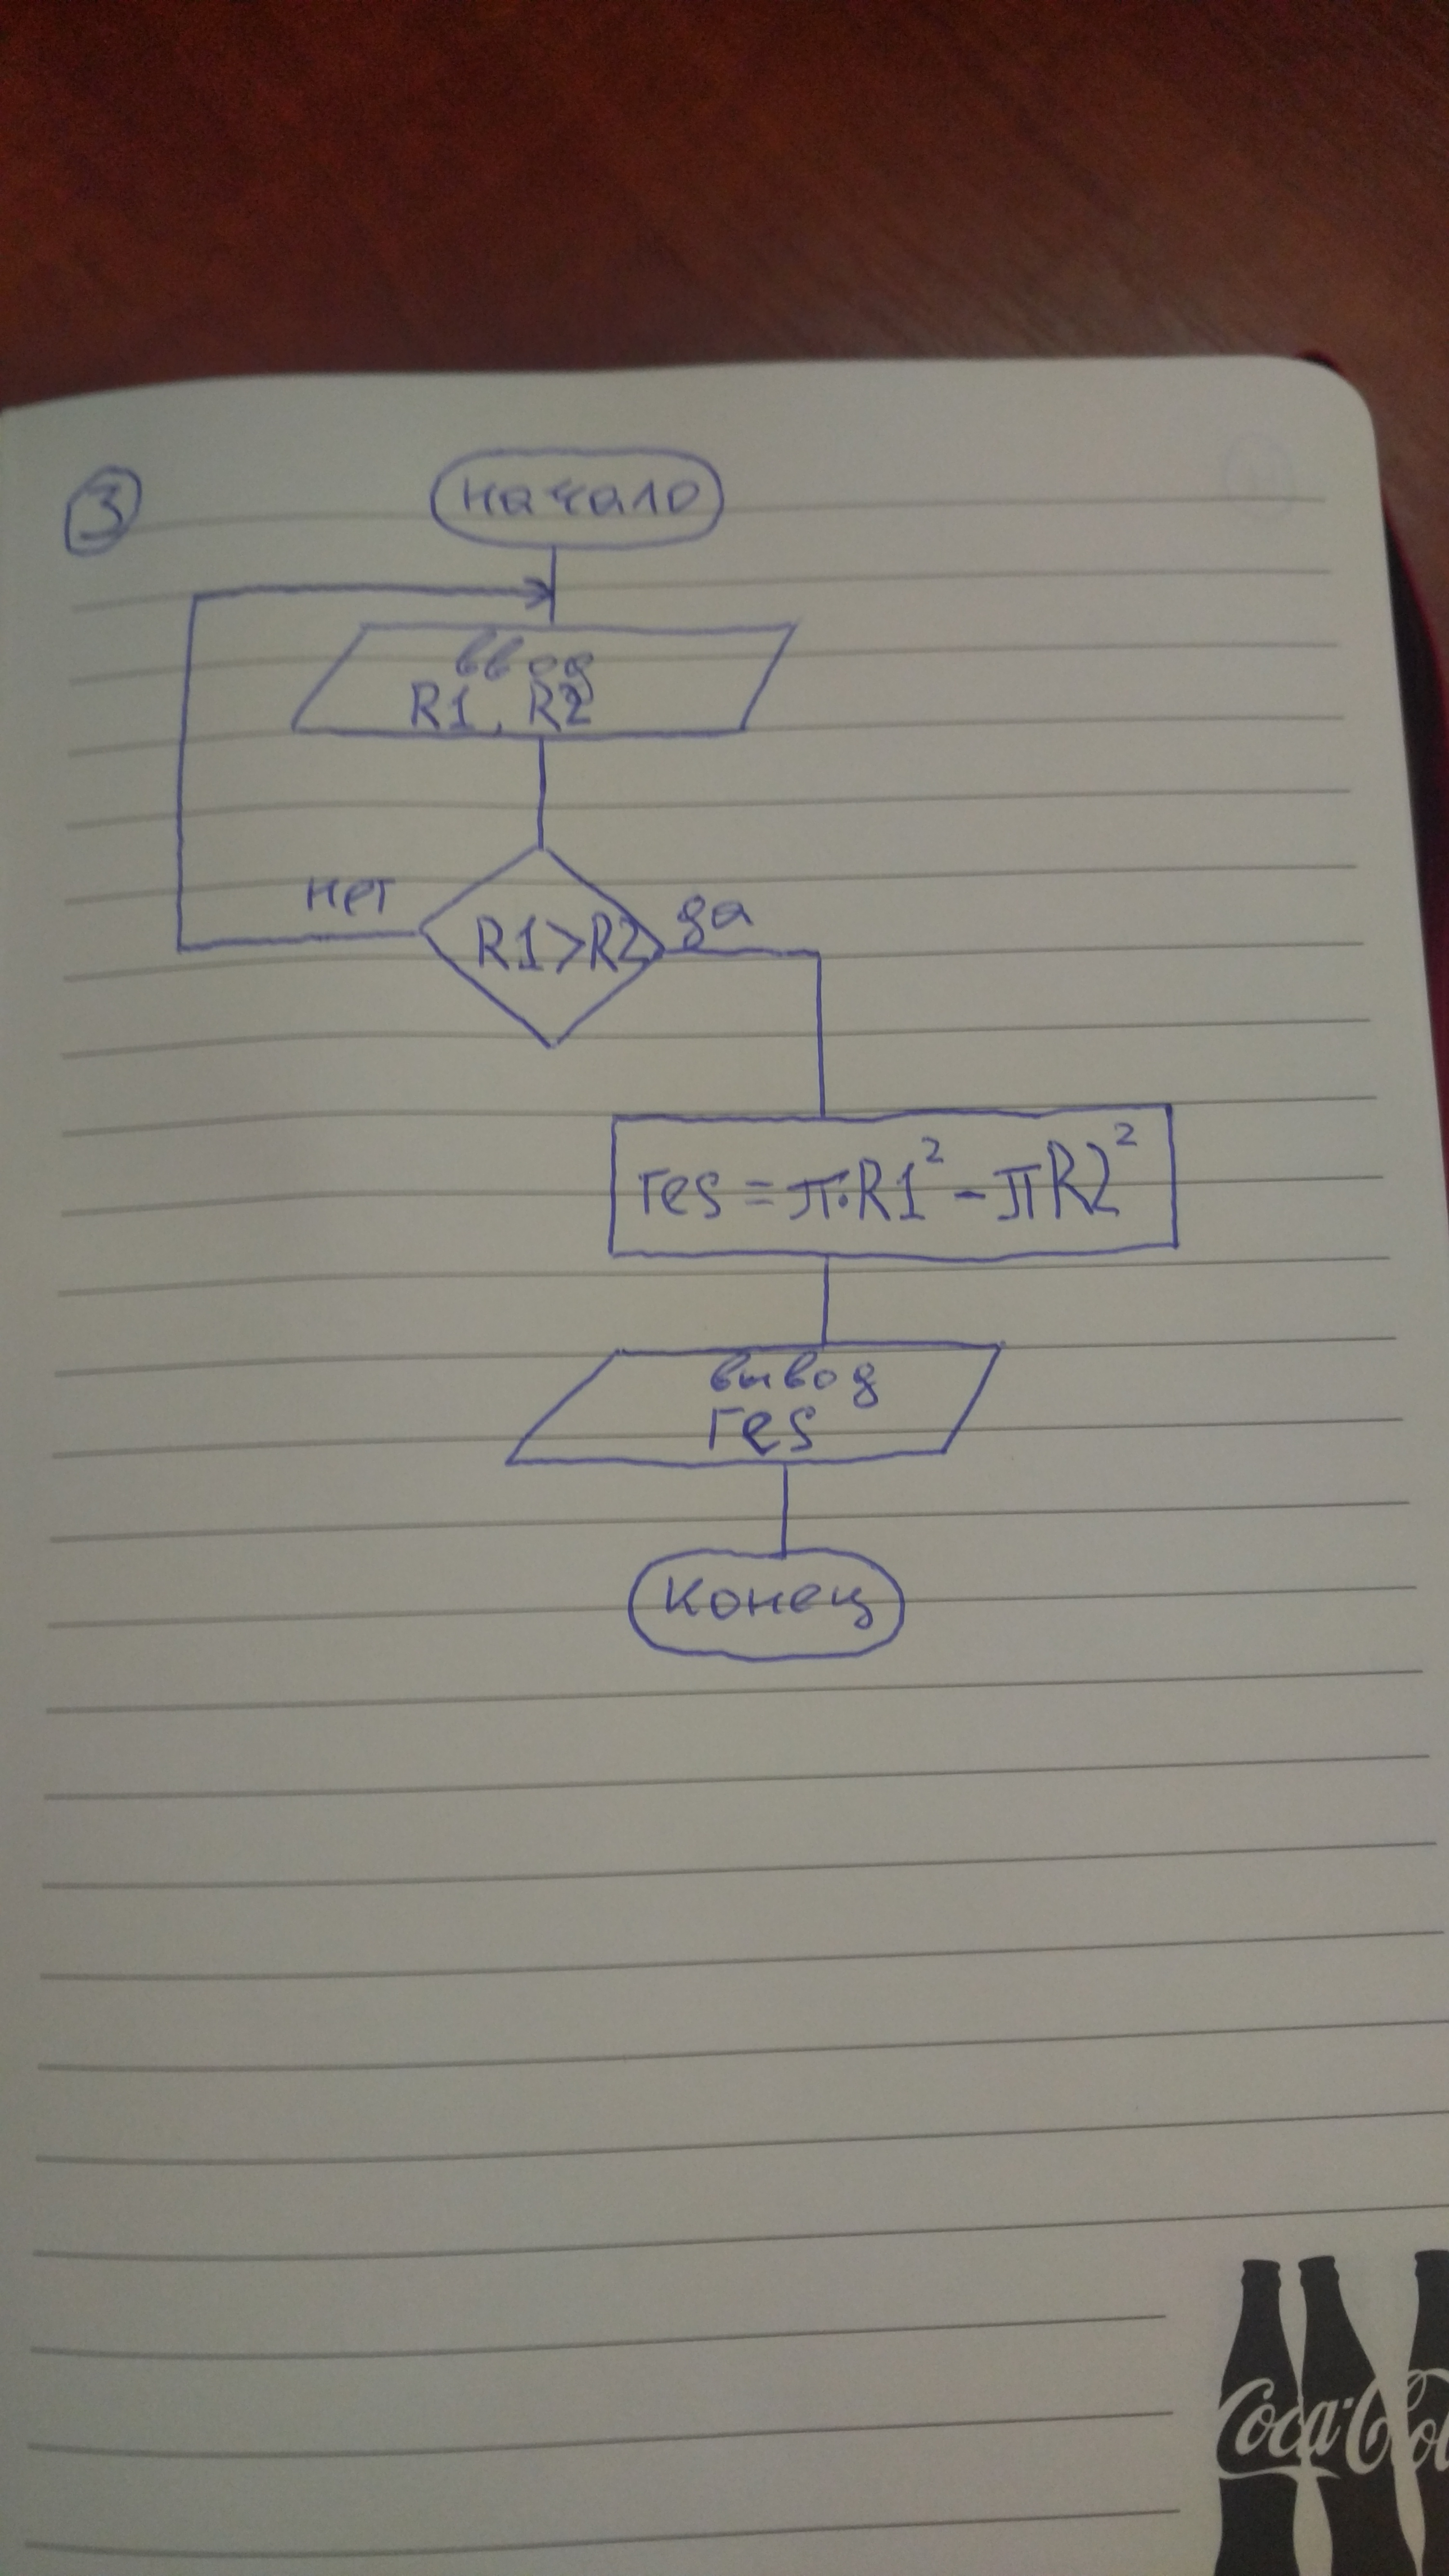 3
начало
ввод
R1, R2
нет
R1>R2
да
res = π·R1² - πR2²
вывод
res
конец
Coca-Col